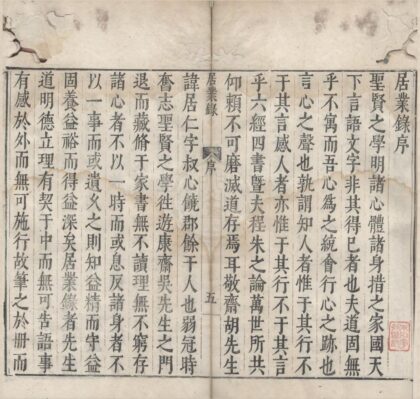 居業錄序
聖賢之學明諸心體諸身措之家國天
下言語文字非其得已者也夫道固無
乎不寓而吾心為之統會行心之跡也
言心之聲也孰謂知人者惟于其行不
于其言感人者亦惟于其行不于其言
乎六經四書暨夫程朱之論萬世所共
仰賴不可磨滅道存焉耳敬齋胡先生
居業錄 序 五
諱居仁字叔心饒郡餘干人也弱冠時
奮志聖賢之學徃遊康齋吳先生之門
退而藏脩于家書無不讀理無不窮存
諸心者不以一時而或息反諸身者不
以一事而或遺乆之則知益精而守益
固養益裕而得益深矣居業錄者先生
道明德立理有契于中而無可告語事
有感於外而無可施行故筆之於冊而